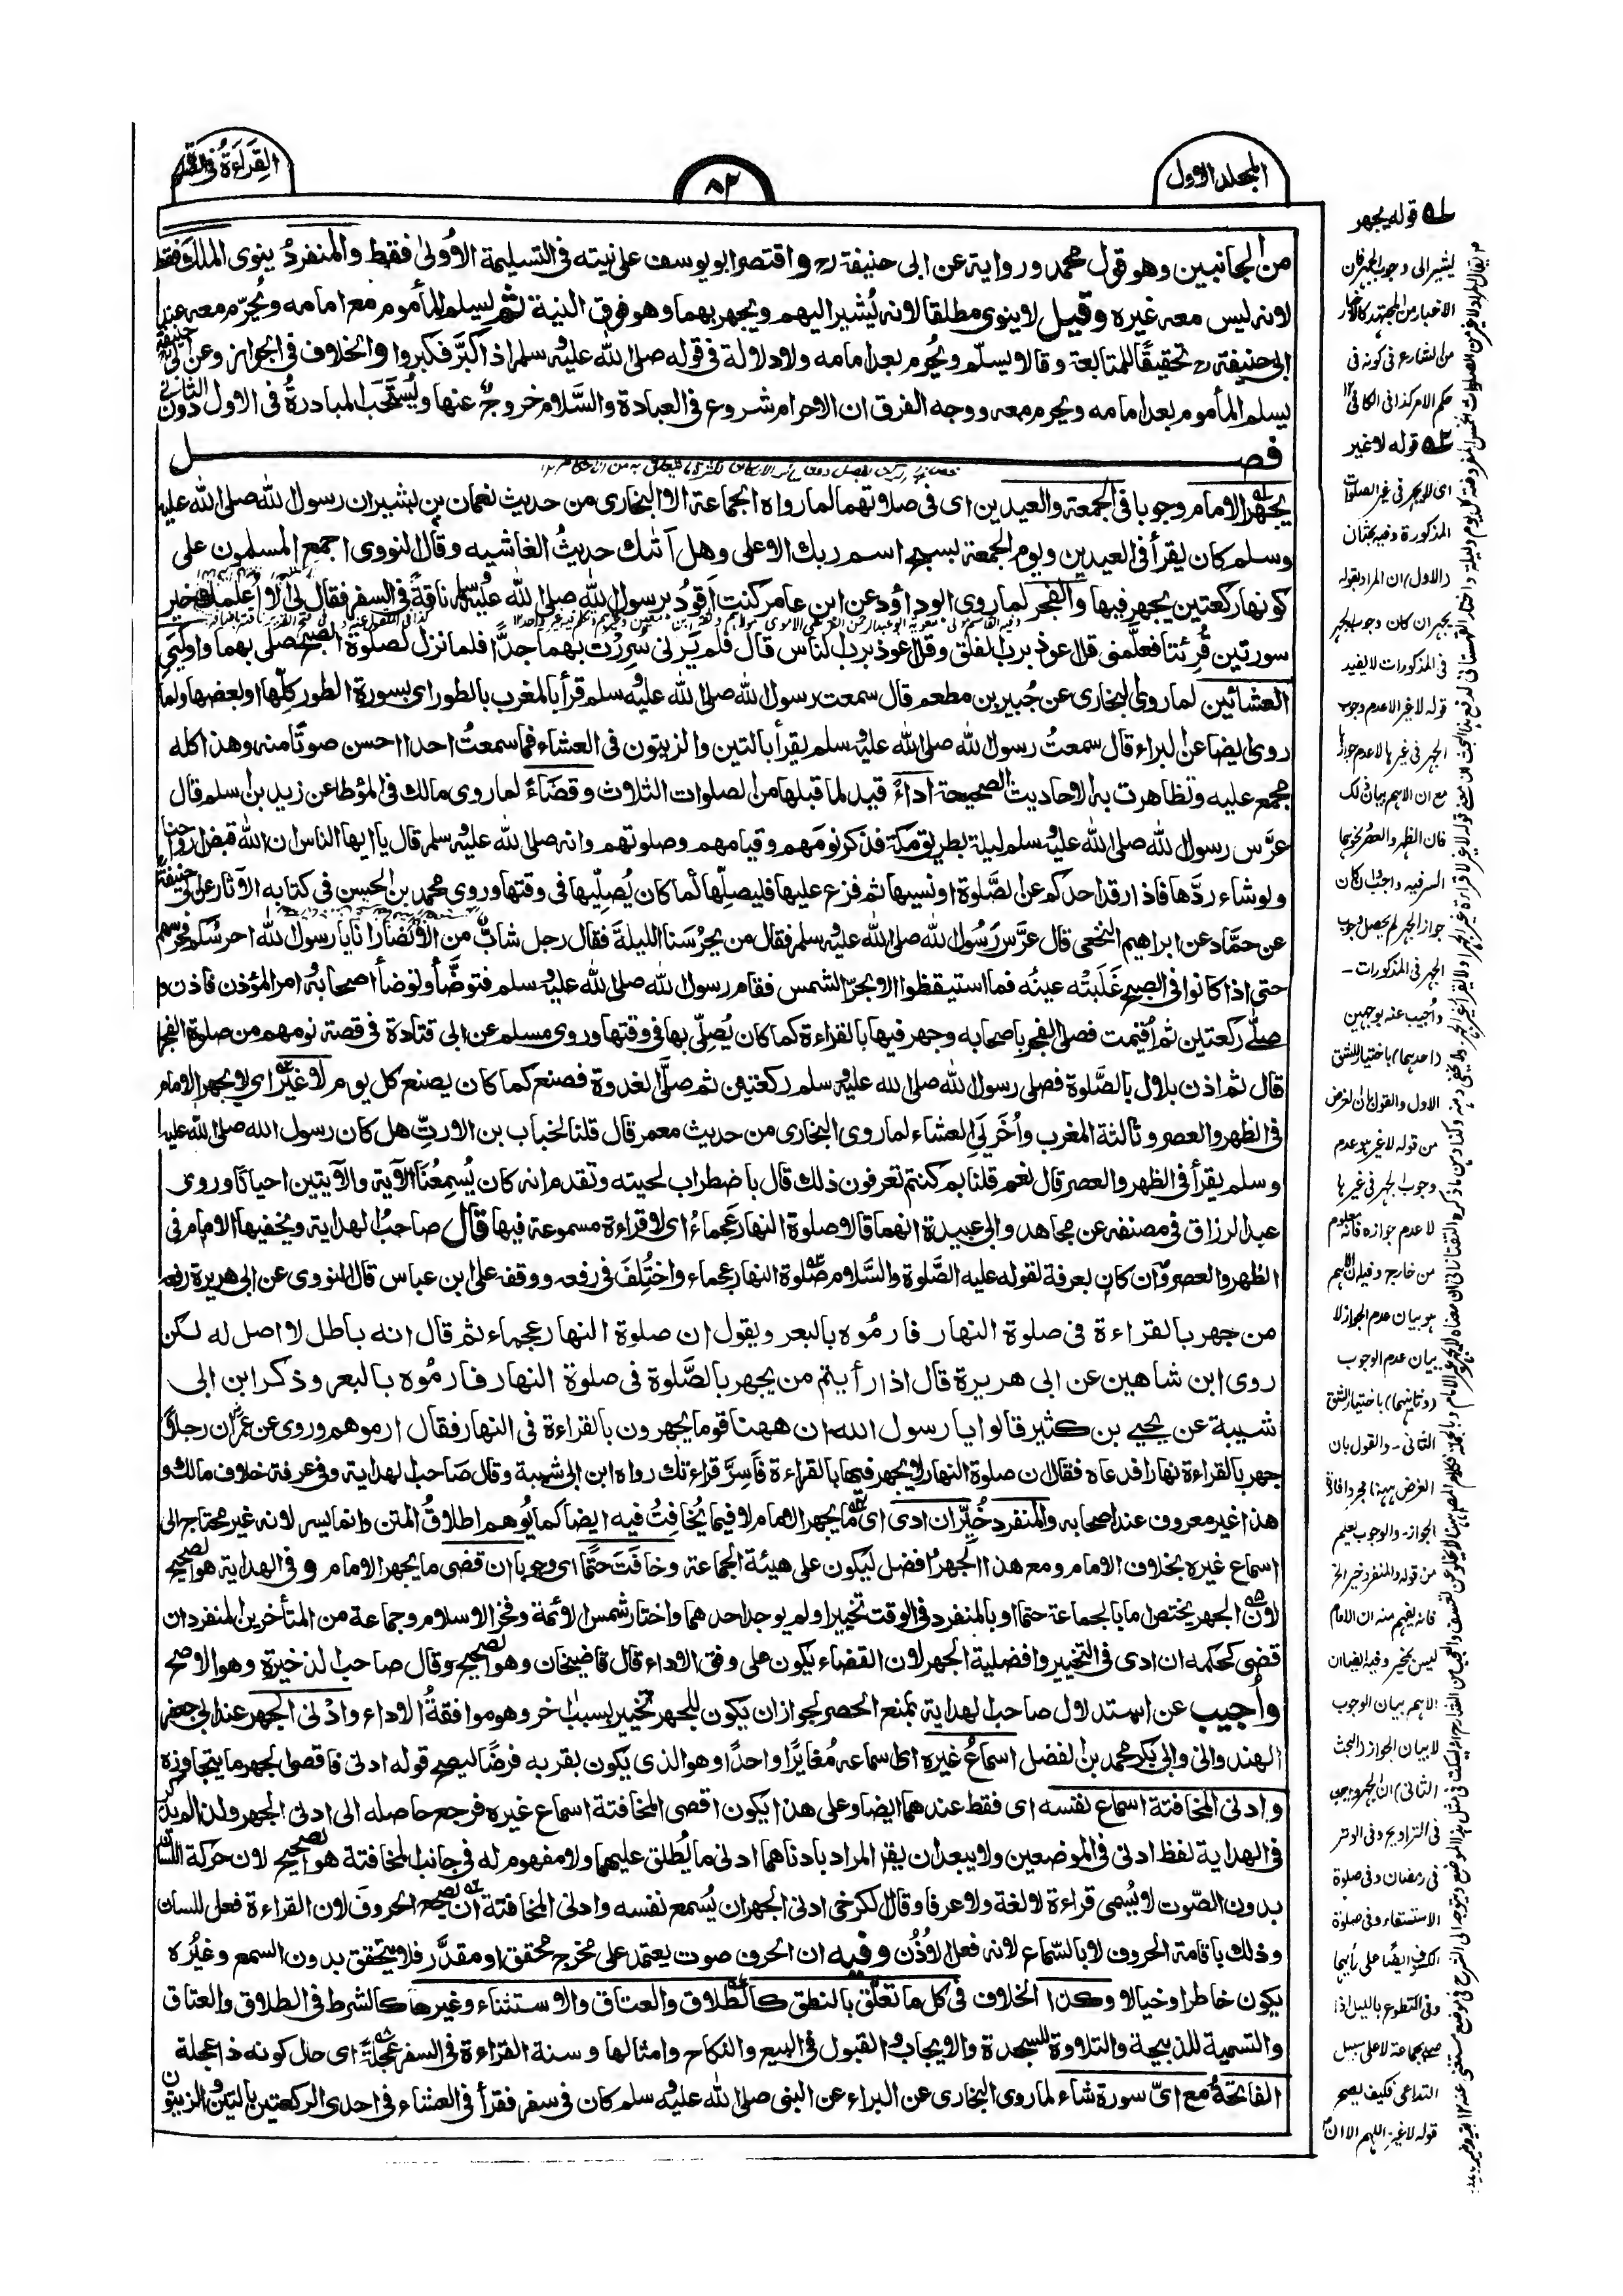 المجلد الاول
٨٢
القراءة فى الصلوة
من الجانبين وهو قول محمد ورواية عن ابى حنيفة رح واقتصر ابو يوسف على نيته فى التسليمة الاولى فقط والمنفرد ينوى الملك فقط
لانه ليس معه غيره وقيل لا ينوى مطلقا لانه يشير اليهم ويجهر بهما وهو فوق النية ثم يسلم المأموم مع امامه ويحرم معه عند
ابى حنيفة رح تحقيقًا للمتابعة وقالا يسلم ويحرم بعد امامه ولا دلالة فى قوله صلى الله عليه وسلم اذا كبّر فكبروا والخلاف فى الجواز وعن ابى حنيفة
يسلم المأموم بعد امامه ويحرم معه ووجه الفرق ان الاحرام شروع فى العبادة والسلام خروج عنها ويستحب المبادرة فى الاول دون الثانى
فصل
يجهر الامام وجوبا فى الجمعة والعيدين اى فى صلاتهما لما رواه الجماعة الا البخارى من حديث نعمان بن بشير ان رسول الله صلى الله عليه
وسلم كان يقرأ فى العيدين ويوم الجمعة بسبح اسم ربك الاعلى وهل آتىك حديث الغاشيه وقال النووى اجمع المسلمون على
كونها ركعتين يجهر فيها والفجر لما روى ابو داؤد عن ابن عامر كنت أقود برسول الله صلى الله عليه وسلم ناقة فى السفر فقال لى الا اعلمك خير
سورتين قرئتا فعلّمنى قل اعوذ برب الفلق وقل اعوذ برب الناس قال فلم يرنى سررت بهما جدًّا فلما نزل لصلوة الصبح صلى بهما واولىي
العشائين لما روى البخارى عن جبير بن مطعم قال سمعت رسول الله صلى الله عليه وسلم قرأ بالمغرب بالطور اى بسورة الطور كلّها او بعضها ولما
روى ايضا عن البراء قال سمعت رسول الله صلى الله عليه وسلم يقرأ بالتين والزيتون فى العشاء فما سمعت احدا احسن صوتًا منه وهذا كله
مجمع عليه وتظاهرت به الاحاديث الصحيحة اداءً قيد لما قبلها من الصلوات الثلاث وقضاءً لما روى مالك فى المؤطا عن زيد بن اسلم قال
عرّس رسول الله صلى الله عليه وسلم ليلة بطريق مكة فذكر نومهم وقيامهم وصلوتهم وانه صلى الله عليه وسلم قال يا ايها الناس ان الله قبض ارواحنا
ولو شاء ردّها فاذا رقد احدكم عن الصّلوة او نسيها ثم فزع اليها فليصلّها كما كان يصلّيها فى وقتها وروى محمد بن الحسن فى كتابه الآثار عن ابى حنيفة
عن حمّاد عن ابراهيم النخعى قال عرّس رسول الله صلى الله عليه وسلم فقال من يحرسنا الليلة فقال رجل شابّ من الانصار انا يا رسول الله احرسكم فحرسهم
حتى اذا كانوا فى الصبح غلبته عينه فما استيقظوا الا بحرّ الشمس فقام رسول الله صلى الله عليه وسلم فتوضّأ وتوضأ اصحابه وامر المؤذن فاذن و
صلّى ركعتين ثم اقيمت فصلى الفجر باصحابه وجهر فيها بالقراءة كما كان يصلّى بها فى وقتها وروى مسلم عن ابى قتادة فى قصة نومهم من صلوة الفجر
قال ثم اذن بلال بالصّلوة فصلى رسول الله صلى الله عليه وسلم ركعتين ثم صلّى الغدوة فصنع كما كان يصنع كل يوم لا غير اى لا يجهر الامام
فى الظهر والعصر وثالثة المغرب واُخريَى العشاء لما روى البخارى من حديث معمر قال قلنا لخباب بن الارتّ هل كان رسول الله صلى الله عليه
وسلم يقرأ فى الظهر والعصر قال نعم قلنا بم كنتم تعرفون ذلك قال باضطراب لحيته وتقدم انه كان يسمعنا الآية والآيتين احيانًا وروى
عبد الرزاق فى مصنفه عن مجاهد وابى عبيدة انهما قالا صلوة النهار عجماءُ اى لا قراءة مسموعة فيها قال صاحب الهداية ويخفيها الامام فى
الظهر والعصر وان كان بعرفة لقوله عليه الصّلوة والسّلام صلوة النهار عجماء واختلف فى رفعه ووقفه على ابن عباس قال النووى عن ابى هريرة رفعه
من جهر بالقراءة فى صلوة النهار فارموه بالبعر ويقول ان صلوة النهار عجماء ثم قال انه باطل لا اصل له لكن
روى ابن شاهين عن ابى هريرة قال اذا رأيتم من يجهر بالصّلوة فى صلوة النهار فارموه بالبعر وذكر ابن ابى
شيبة عن يحيى بن كثير قالوا يا رسول الله ان ههنا قوما يجهرون بالقراءة فى النهار فقال ارموهم وروى عن عمر ان رجلا
جهر بالقراءة نهارا فدعاه فقال ان صلوة النهار لا يجهر فيها بالقراءة فأسرّ قراءتك رواه ابن ابى شيبة وقال صاحب الهداية وفى عرفة خلاف مالك و
هذا غير معروف عند اصحابه والمنفرد خيّر ان ادى اى ما يجهر الامام لا فيما يخافت فيه ايضا كما يوهم اطلاق المتن وانما يسر لانه غير محتاج الى
اسماع غيره بخلاف الامام ومع هذا الجهر افضل ليكون على هيئة الجماعة وخافت حتمًا اى وجوبا ان قضى ما يجهر الامام وفى الهداية هو الصحيح
لان الجهر يختص اما بالجماعة حتما او بالمنفرد فى الوقت تخييرا ولم يوجد احدهما واختار شمس الائمة وفخر الاسلام وجماعة من المتأخرين المنفرد ان
قضى كحكمه ان ادى فى التخيير وافضلية الجهر لان القضاء يكون على وفق الاداء قال قاضيخان وهو الصحيح وقال صاحب الذخيرة وهو الاصح
وأجيب عن استدلال صاحب الهداية بمنع الحصر لجواز ان يكون للجهر تخيير بسبب اخر وهو موافقة الاداء وادنى الجهر عند ابى جعفر
الهندوانى وابى بكر محمد بن الفضل اسماع غيره اى اسماعه مغايرًا واحدًا وهو الذى يكون بقربه فرضًا ليصح قوله ادنى فاقصى الجهر ما يتجاوزه
وادنى المخافتة اسماع نفسه اى فقط عندهما ايضا وعلى هذا يكون اقصى المخافتة اسماع غيره فرجع حاصله الى ادنى الجهر ولذا لم يذكر
فى الهداية لفظ ادنى فى الموضعين ولا يبعد ان يقال المراد بادناهما ادنى ما يطلق عليهما ولا مفهوم له فى جانب المخافتة هو الصحيح لان حركة اللسان
بدون الصّوت لا يسمى قراءة لا لغة ولا عرفا وقال الكرخى ادنى الجهر ان يسمع نفسه وادنى المخافتة ان تصحح الحروف لان القراءة فعل اللسان
وذلك باقامة الحروف لا بالسّماع لانه فعل الاذن وفيه ان الحرف صوت يعتمد على مخرج محقق او مقدّر فلا يتحقق بدون السمع وغيره
يكون خاطرا وخيالا وكذا الخلاف فى كل ما تعلّق بالنطق كالطلاق والعتاق والاستثناء وغيرها كالشرط فى الطلاق والعتاق
والتسمية للذبيحة والتلاوة للسجدة والايجاب والقبول فى البيع والنكاح وامثالها وسنة القراءة فى السفر عجلة اى حال كونه ذا عجلة
الفاتحة مع اىّ سورة شاء لما روى البخارى عن البراء عن النبى صلى الله عليه وسلم كان فى سفر فقرأ فى العشاء فى احدى الركعتين بالتين والزيتون
قوله يجهر
يشير الى وجوب الجهر فان
الاخبار من المجتهد كالاخبار
من الشارع فى كونه فى
حكم الامر كذا فى الكافى ١٢
قوله لا غير
اى لا يجهر فى غير الصلوات
المذكورة وفيه بحثان
(الاول) ان المراد بقوله
يجهر ان كان وجوب الجهر
فى المذكورات لا يفيد
قوله لا غير الا عدم وجوب
الجهر فى غيرها لا عدم جوازها
مع ان الاهم بيان ذلك
فان الظهر والعصر ونحوهما
السر فيه واجب وان كان
جواز الجهر لم يحصل وجوب
الجهر فى المذكورات -
وأجيب عنه بوجهين
(احدهما) باختيار الشق
الاول والقول بان الغرض
من قوله لا غير هو عدم
وجوب الجهر فى غيرها
لا عدم جوازه فانه معلوم
من خارج وفيه ان الاهم
هو بيان عدم الجواز لا
بيان عدم الوجوب
(وثانيهما) باختيار الشق
الثانى - والقول بان
الغرض ههنا مجرد افادة
الجواز - والوجوب يعلم
من قوله والمنفرد خير الخ
فانه يفهم منه ان الامام
ليس بمخير وفيه ايضا ان
الاهم بيان الوجوب
لا بيان الجواز (البحث
الثانى) ان الجهر واجب
فى التراويح وفى الوتر
فى رمضان وفى صلوة
الاستسقاء وفى صلوة
الكسوف ايضًا على رأيهما
وفى التطوع بالليل اذا
صلى بجماعة لا على سبيل
التداعى فكيف يصح
قوله لا غير اللهم الا ان